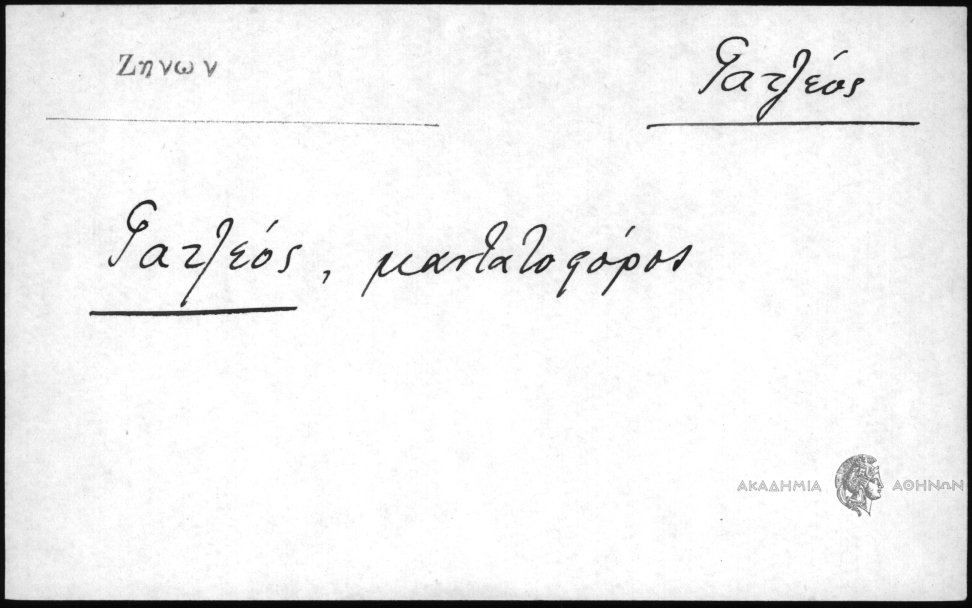 Ζηνων
Γατζεός
Γατζεός, μαντατοφόρος
ΑΚΑΔΗΜΙΑ ΑΘΗΝΩΝ